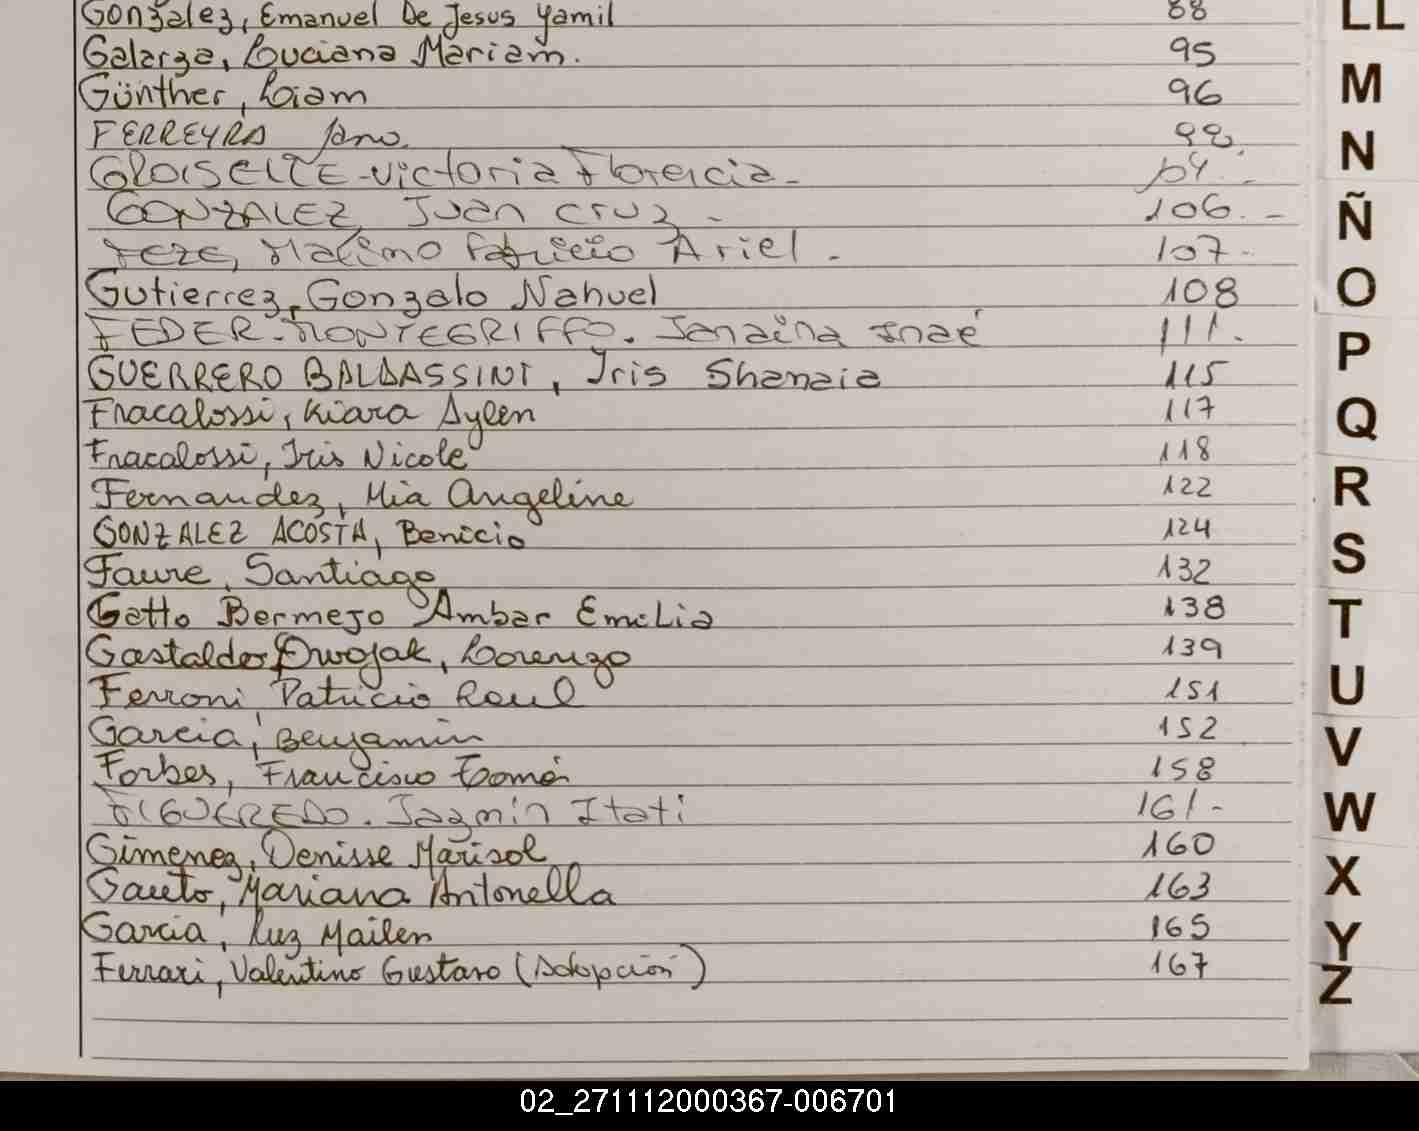 González, Emanuel De Jesus Yamil 88
Galarza, Luciana Mariam. 95
Günther, Liam 96
FERREYRA Jano. 99.
Victoria Florencia - 104.-
GONZALEZ, Juan Cruz - 106.-
Maximo Patricio Ariel. 107-
Gutierrez, Gonzalo Nahuel 108
FEDER-MONTEGRIFFO. Janaina Inaé 111.
GUERRERO BALDASSINI, Iris Shanaia 115
Fracalossi, Kiara Aylen 117
Fracalossi, Iris Nicole 118
Fernandez, Mia Angeline 122
GONZALEZ ACOSTA, Benicio 124
Faure, Santiago 132
Getto Bermejo Ambar Emilia 138
Gastaldo Dwojak, Lorenzo 139
Ferroni, Patricio Raul 151
Garcia, Benjamin 152
Forbes, Francisco Tomás 158
FIGUEREDO. Jazmín Itati 161-
Gimenez, Denisse Marisol 160
Gauto, Mariana Antonella 163
Garcia, Luz Mailen 165
Ferrari, Valentino Gustavo (Adopción) 167
LL
M
N
Ñ
O
P
Q
R
S
T
U
V
W
X
Y
Z
02_271112000367-006701